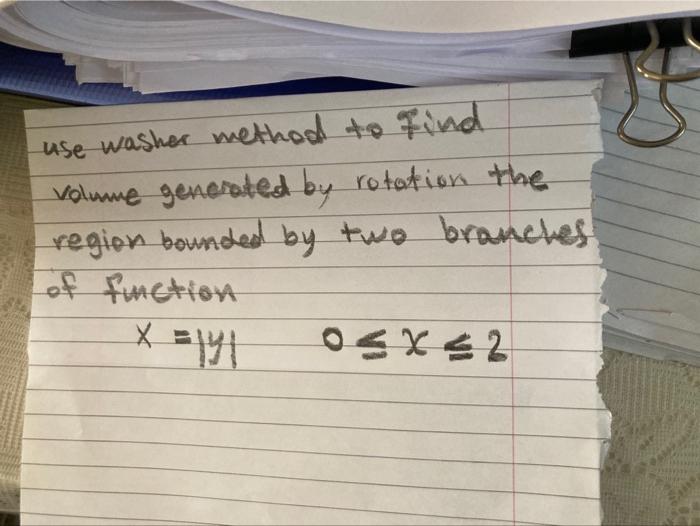 use washer method to find
volume generated by rotation the
region bounded by two branches
of function
x = |y| 0 ≤ x ≤ 2